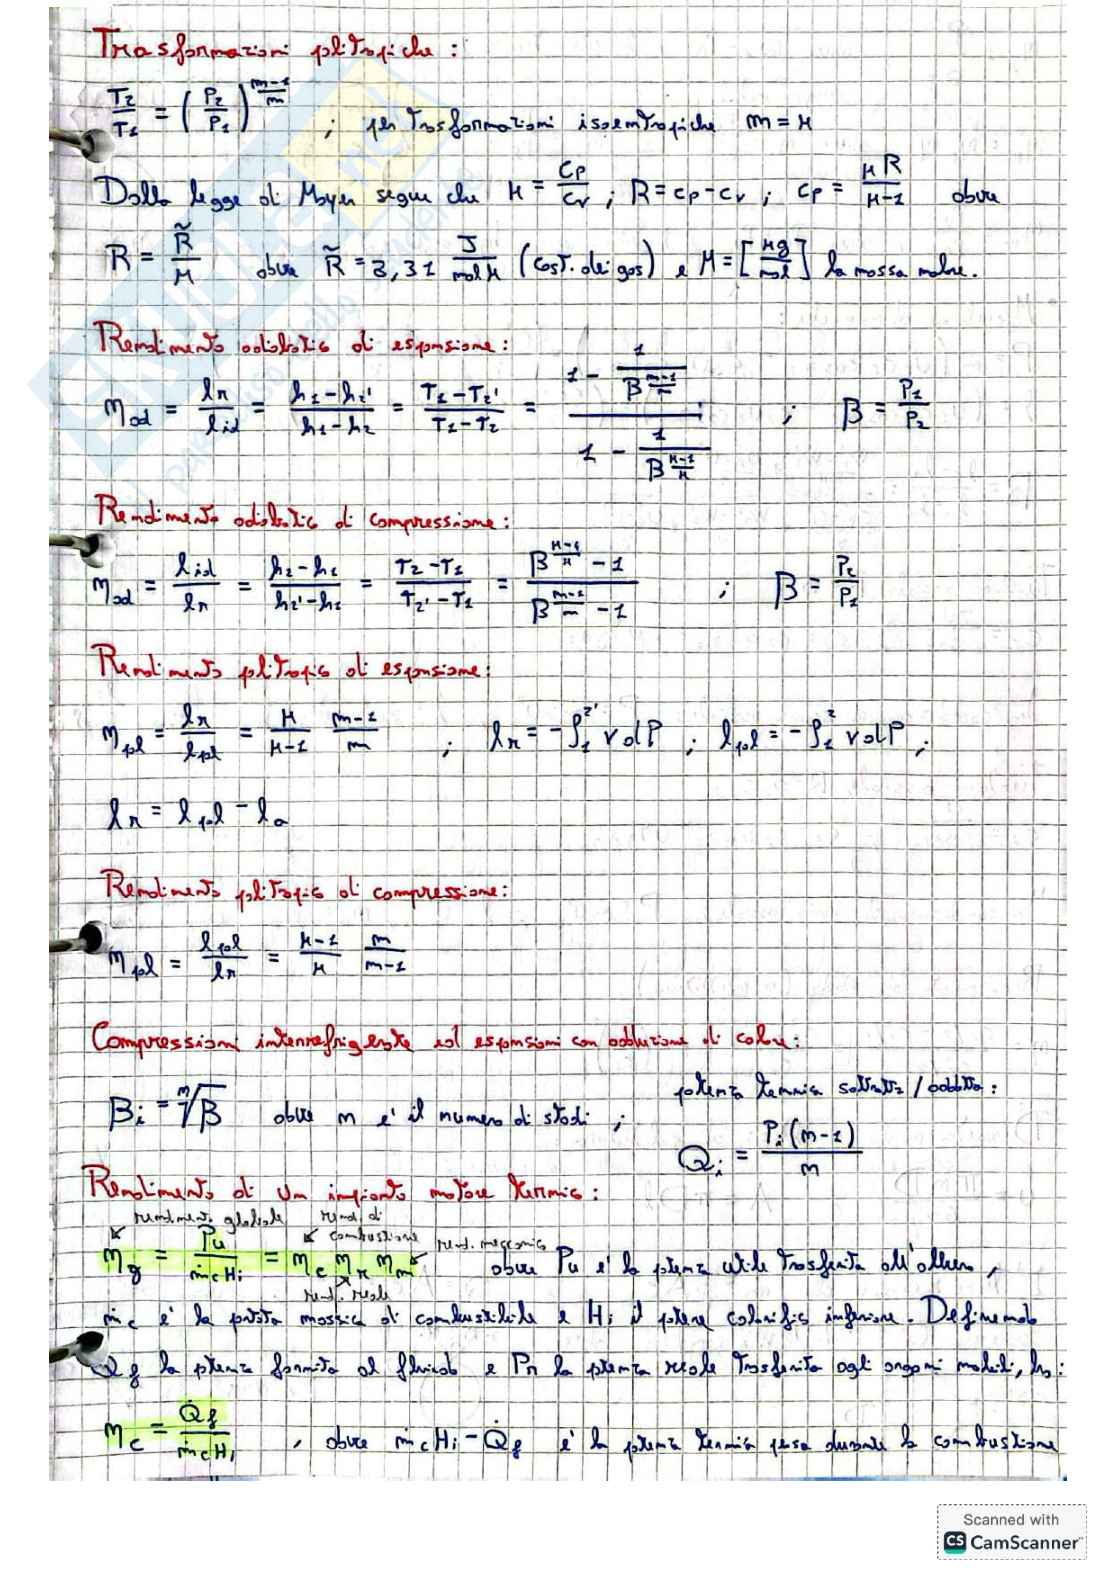 Trasformazioni politropiche :
T2/T1 = (P2/P1)^((m-1)/m) ; per trasformazioni isoentropiche m = k
Dalla legge di Mayer segue che k = cp/cv ; R = cp - cv ; cp = kR/(k-1) dove
R = R̃/M dove R̃ = 8,31 J/(mol K) (cost. dei gas) e M = [kg/mol] la massa molare.
Rendimento adiabatico di espansione :
ηad = lr/lid = (h1 - h2')/(h1 - h2) = (T1 - T2')/(T1 - T2) = (1 - 1/β^((m-1)/m))/(1 - 1/β^((k-1)/k)) ; β = P1/P2
Rendimento adiabatico di compressione :
ηad = lid/lr = (h2 - h1)/(h2' - h1) = (T2 - T1)/(T2' - T1) = (β^((k-1)/k) - 1)/(β^((m-1)/m) - 1) ; β = P2/P1
Rendimento politropico di espansione :
ηpol = lr/lpol = k/(k-1) (m-1)/m ; lr = -∫1^2' v dP ; lpol = -∫1^2 v dP ;
lr = lpol - la
Rendimento politropico di compressione :
ηpol = lpol/lr = (k-1)/k m/(m-1)
Compressioni interrefrigerate ed espansioni con adduzione di calore :
potenza termica sottratta / addotta :
βi = ᵐ√β dove m e' il numero di stadi ;
Qi = Pi (m-1)/m
Rendimento di un impianto motore termico :
rendimento globale rend. di combustione rend. meccanico
ηg = Pu/(ṁc Hi) = ηc ηr ηm dove Pu e' la potenza utile trasferita all'albero,
rend. reale
ṁc e' la portata massica di combustibile e Hi il potere calorifico inferiore. Definendo
Q̇f la potenza fornita al fluido e Pr la potenza reale trasferita agli organi mobili, ho :
ηc = Q̇f/(ṁc Hi) , dove ṁc Hi - Q̇f e' la potenza termica persa durante la combustione
Scanned with
CS CamScanner